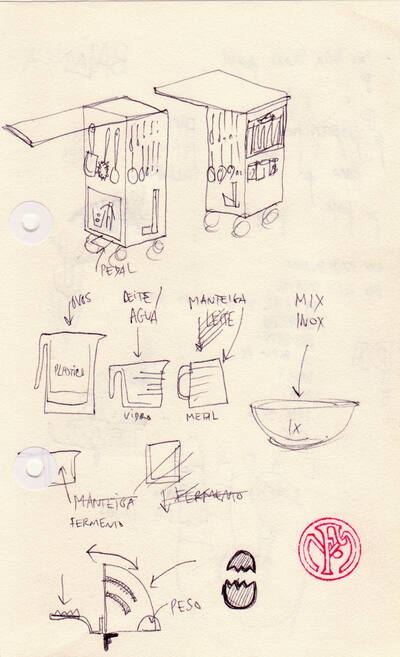 PEDAL
OVOS
LEITE/
ÁGUA
MANTEIGA
LEITE
MIX
INOX
PLASTICO
VIDRO
METAL
1X
MANTEIGA
FERMENTO
FERMENTO
PESO